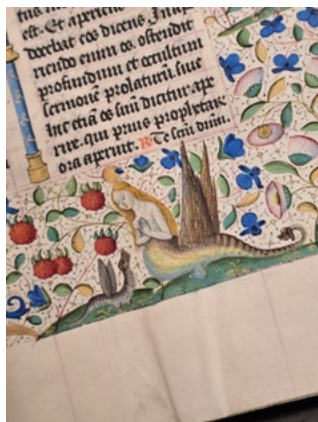 est. Et aperiens
docebat eos dicens. Jn ip
riendo enim os, ostendit
profundum et occultum
sermonē prolaturū sue
etiā os suū dicitur ape
rire. qui prius prophetar
ora aperuit. Te